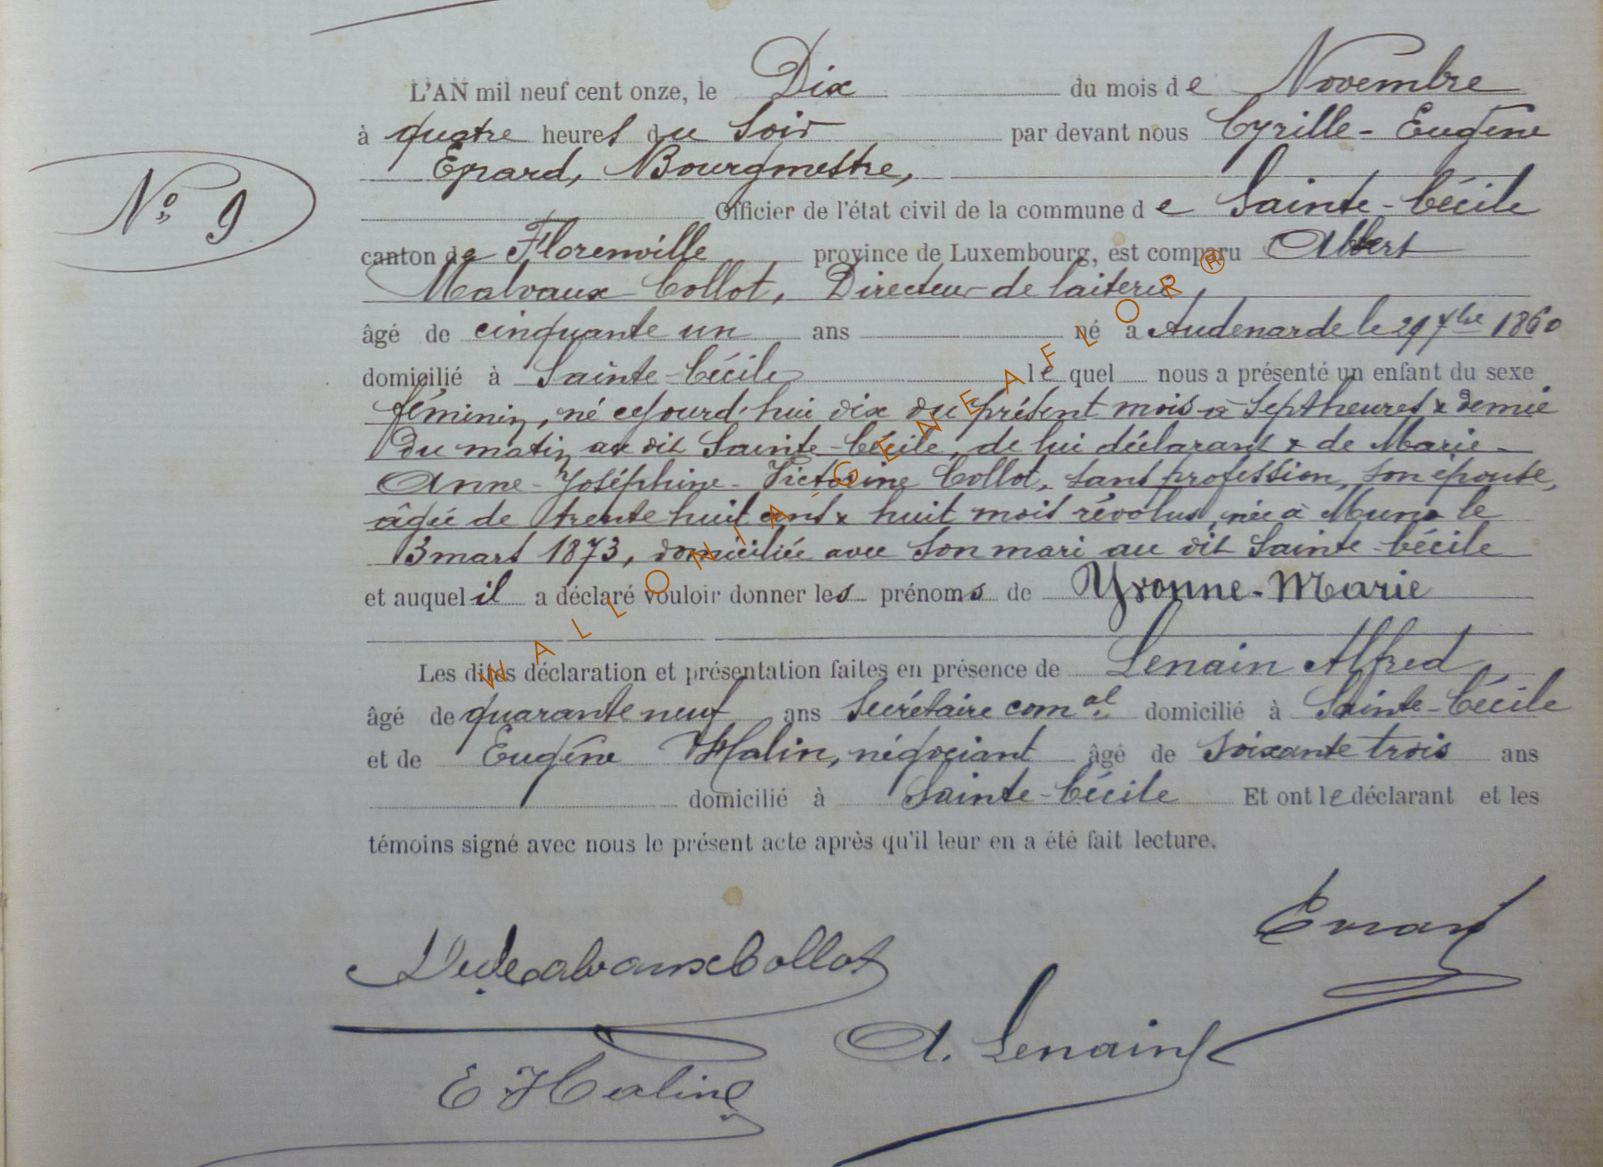 L'AN mil neuf cent onze, le Dix du mois de Novembre
à quatre heures du soir par devant nous Cyrille-Eugène
Evrard, Bourgmestre,
N° 9
Officier de l'état civil de la commune de Sainte-Cécile
canton de Florenville province de Luxembourg, est comparu Albert
Malvaux-Collot, Directeur de laiterie,
âgé de cinquante un ans né à Audenarde le 29 7bre 1860
domicilié à Sainte-Cécile lequel nous a présenté un enfant du sexe
féminin, né cejourd'hui dix du présent mois à sept heures & demie
du matin au dit Sainte-Cécile, de lui déclarant & de Marie-
Anne-Joséphine-Victorine Collot, sans profession, son épouse,
âgée de trente huit ans & huit mois révolus, née à Muno le
3 mars 1873, domiciliée avec son mari au dit Sainte-Cécile
et auquel il a déclaré vouloir donner les prénoms de Yvonne-Marie
Les dites déclaration et présentation faites en présence de Lenain Alfred,
âgé de quarante neuf ans Secrétaire comal domicilié à Sainte-Cécile
et de Eugène Halin, négociant âgé de soixante trois ans
domicilié à Sainte-Cécile Et ont le déclarant et les
témoins signé avec nous le présent acte après qu'il leur en a été fait lecture.
Evrard
MalvauxCollot
A. Lenain
E Halin
WALLONIA-GENEAFLOR®